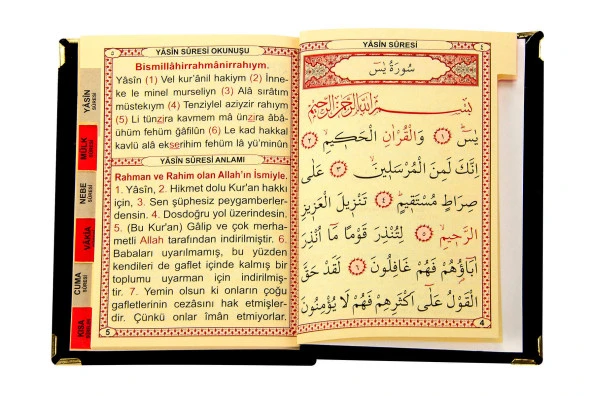 YÂSİN SÛRESİ
٤
سُورَةُ يٰسٓ
بِسْمِ اللّٰهِ الرَّحْمٰنِ الرَّحِيمِ
يٰسٓ ﴿١﴾ وَالْقُرْاٰنِ الْحَكِيمِۙ ﴿٢﴾
اِنَّكَ لَمِنَ الْمُرْسَلِينَۙ ﴿٣﴾ عَلٰى
صِرَاطٍ مُسْتَقِيمٍۜ ﴿٤﴾ تَنْزِيلَ الْعَزِيزِ
الرَّحِيمِۙ ﴿٥﴾ لِتُنْذِرَ قَوْمًا مَٓا اُنْذِرَ
اٰبَٓاؤُ۬هُمْ فَهُمْ غَافِلُونَ ﴿٦﴾ لَقَدْ حَقَّ
الْقَوْلُ عَلٰٓى اَكْثَرِهِمْ فَهُمْ لَا يُؤْمِنُونَ
4
YÂSİN SÛRESİ OKUNUŞU
٥
Bismillâhirrahmânirrahıym.
Yâsîn (1) Vel kur'ânil hakiym (2) İnne-
ke le minel murseliyn (3) Alâ sırâtım
müstekıym (4) Tenziylel aziyzir rahıym
(5) Li tünzira kavmem mâ ünzira âbâ-
ühüm fehüm ğâfilûn (6) Le kad hakkal
kavlü alâ ekserihim fehüm lâ yü'minûn
YÂSİN SÛRESİ ANLAMI
Rahman ve Rahim olan Allah'ın İsmiyle.
1. Yâsîn, 2. Hikmet dolu Kur'an hakkı
için, 3. Sen şüphesiz peygamberler-
densin. 4. Dosdoğru yol üzerindesin.
5. (Bu Kur'an) Gâlip ve çok merha-
metli Allah tarafından indirilmiştir. 6.
Babaları uyarılmamış, bu yüzden
kendileri de gaflet içinde kalmış bir
toplumu uyarman için indirilmiş-
tir. 7. Yemin olsun ki onların çoğu
gafletlerinin cezasını hak etmişler-
dir. Çünkü onlar îmân etmiyorlar.
5
YÂSİN
SÛRESİ
MÜLK
SÛRESİ
NEBE
SÛRESİ
VÂKIA
SÛRESİ
CUMA
SÛRESİ
KISA